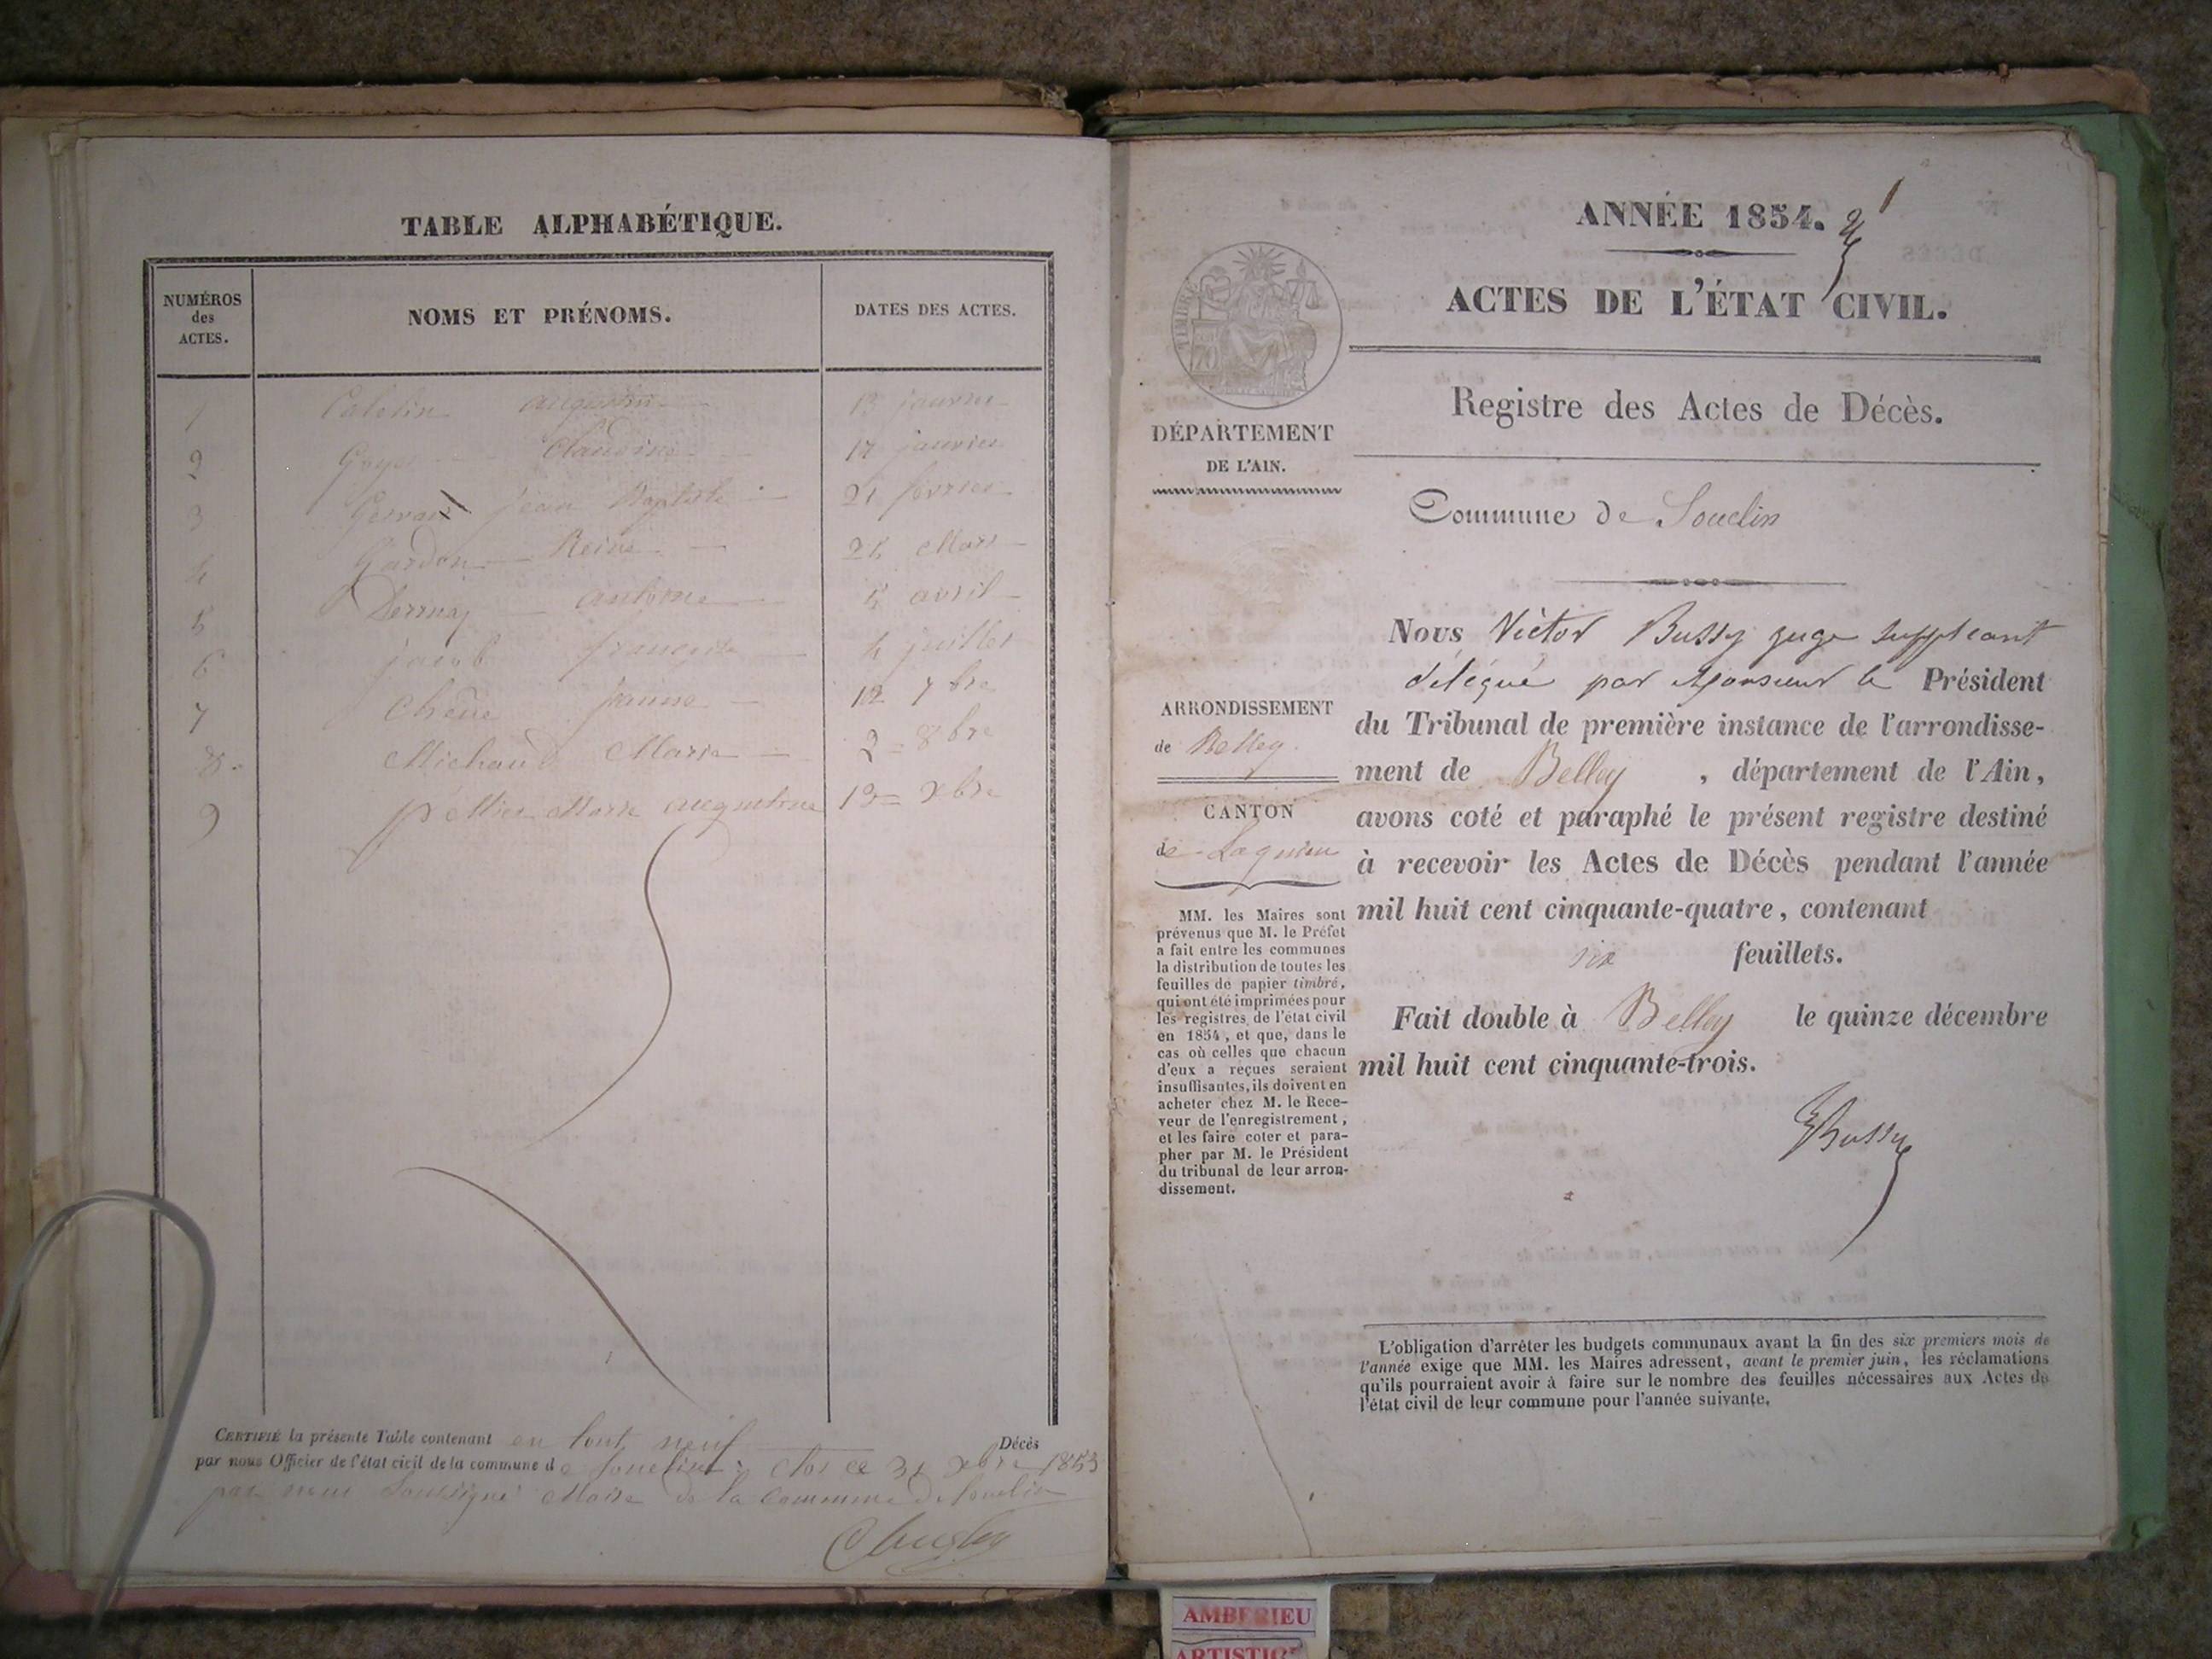 TABLE ALPHABÉTIQUE.
NUMÉROS des ACTES.
NOMS ET PRÉNOMS.
DATES DES ACTES.
1 augustin 13 janvier
2 Goyet Claudine 17 janvier
3 Gervais Jean Baptiste 21 février
4 Gardon Reine 24 Mars
5 antoine 5 avril
6 jacob françoise 4 juillet
7 Chêne 12 7bre
8 Michaud Marie 2 8bre
9 Marie augustine 19 xbre
CERTIFIÉ la présente Table contenant en tout neuf Décès
par nous Officier de l'état civil de la commune de Souclin clos ce 31 xbre 1853
par nous soussigné Maire de la Commune de Souclin
ANNÉE 1854.
1
ACTES DE L'ÉTAT CIVIL.
Registre des Actes de Décès.
TIMBRE
70
DÉPARTEMENT
DE L'AIN.
Commune de Souclin
ARRONDISSEMENT
de Belley.
CANTON
de Lagnieu
MM. les Maires sont
prévenus que M. le Préfet
a fait entre les communes
la distribution de toutes les
feuilles de papier timbré,
qui ont été imprimées pour
les registres de l'état civil
en 1854, et que, dans le
cas où celles que chacun
d'eux a reçues seraient
insuffisantes, ils doivent en
acheter chez M. le Rece-
veur de l'enregistrement,
et les faire coter et para-
pher par M. le Président
du tribunal de leur arron-
dissement.
Nous Victor Bussy juge suppléant
délégué par Monsieur le Président
du Tribunal de première instance de l'arrondisse-
ment de Belley, département de l'Ain,
avons coté et paraphé le présent registre destiné
à recevoir les Actes de Décès pendant l'année
mil huit cent cinquante-quatre, contenant
six feuillets.
Fait double à Belley le quinze décembre
mil huit cent cinquante-trois.
Bussy
L'obligation d'arrêter les budgets communaux avant la fin des six premiers mois de
l'année exige que MM. les Maires adressent, avant le premier juin, les réclamations
qu'ils pourraient avoir à faire sur le nombre des feuilles nécessaires aux Actes de
l'état civil de leur commune pour l'année suivante.
AMBERIEU
ARTISTIQ